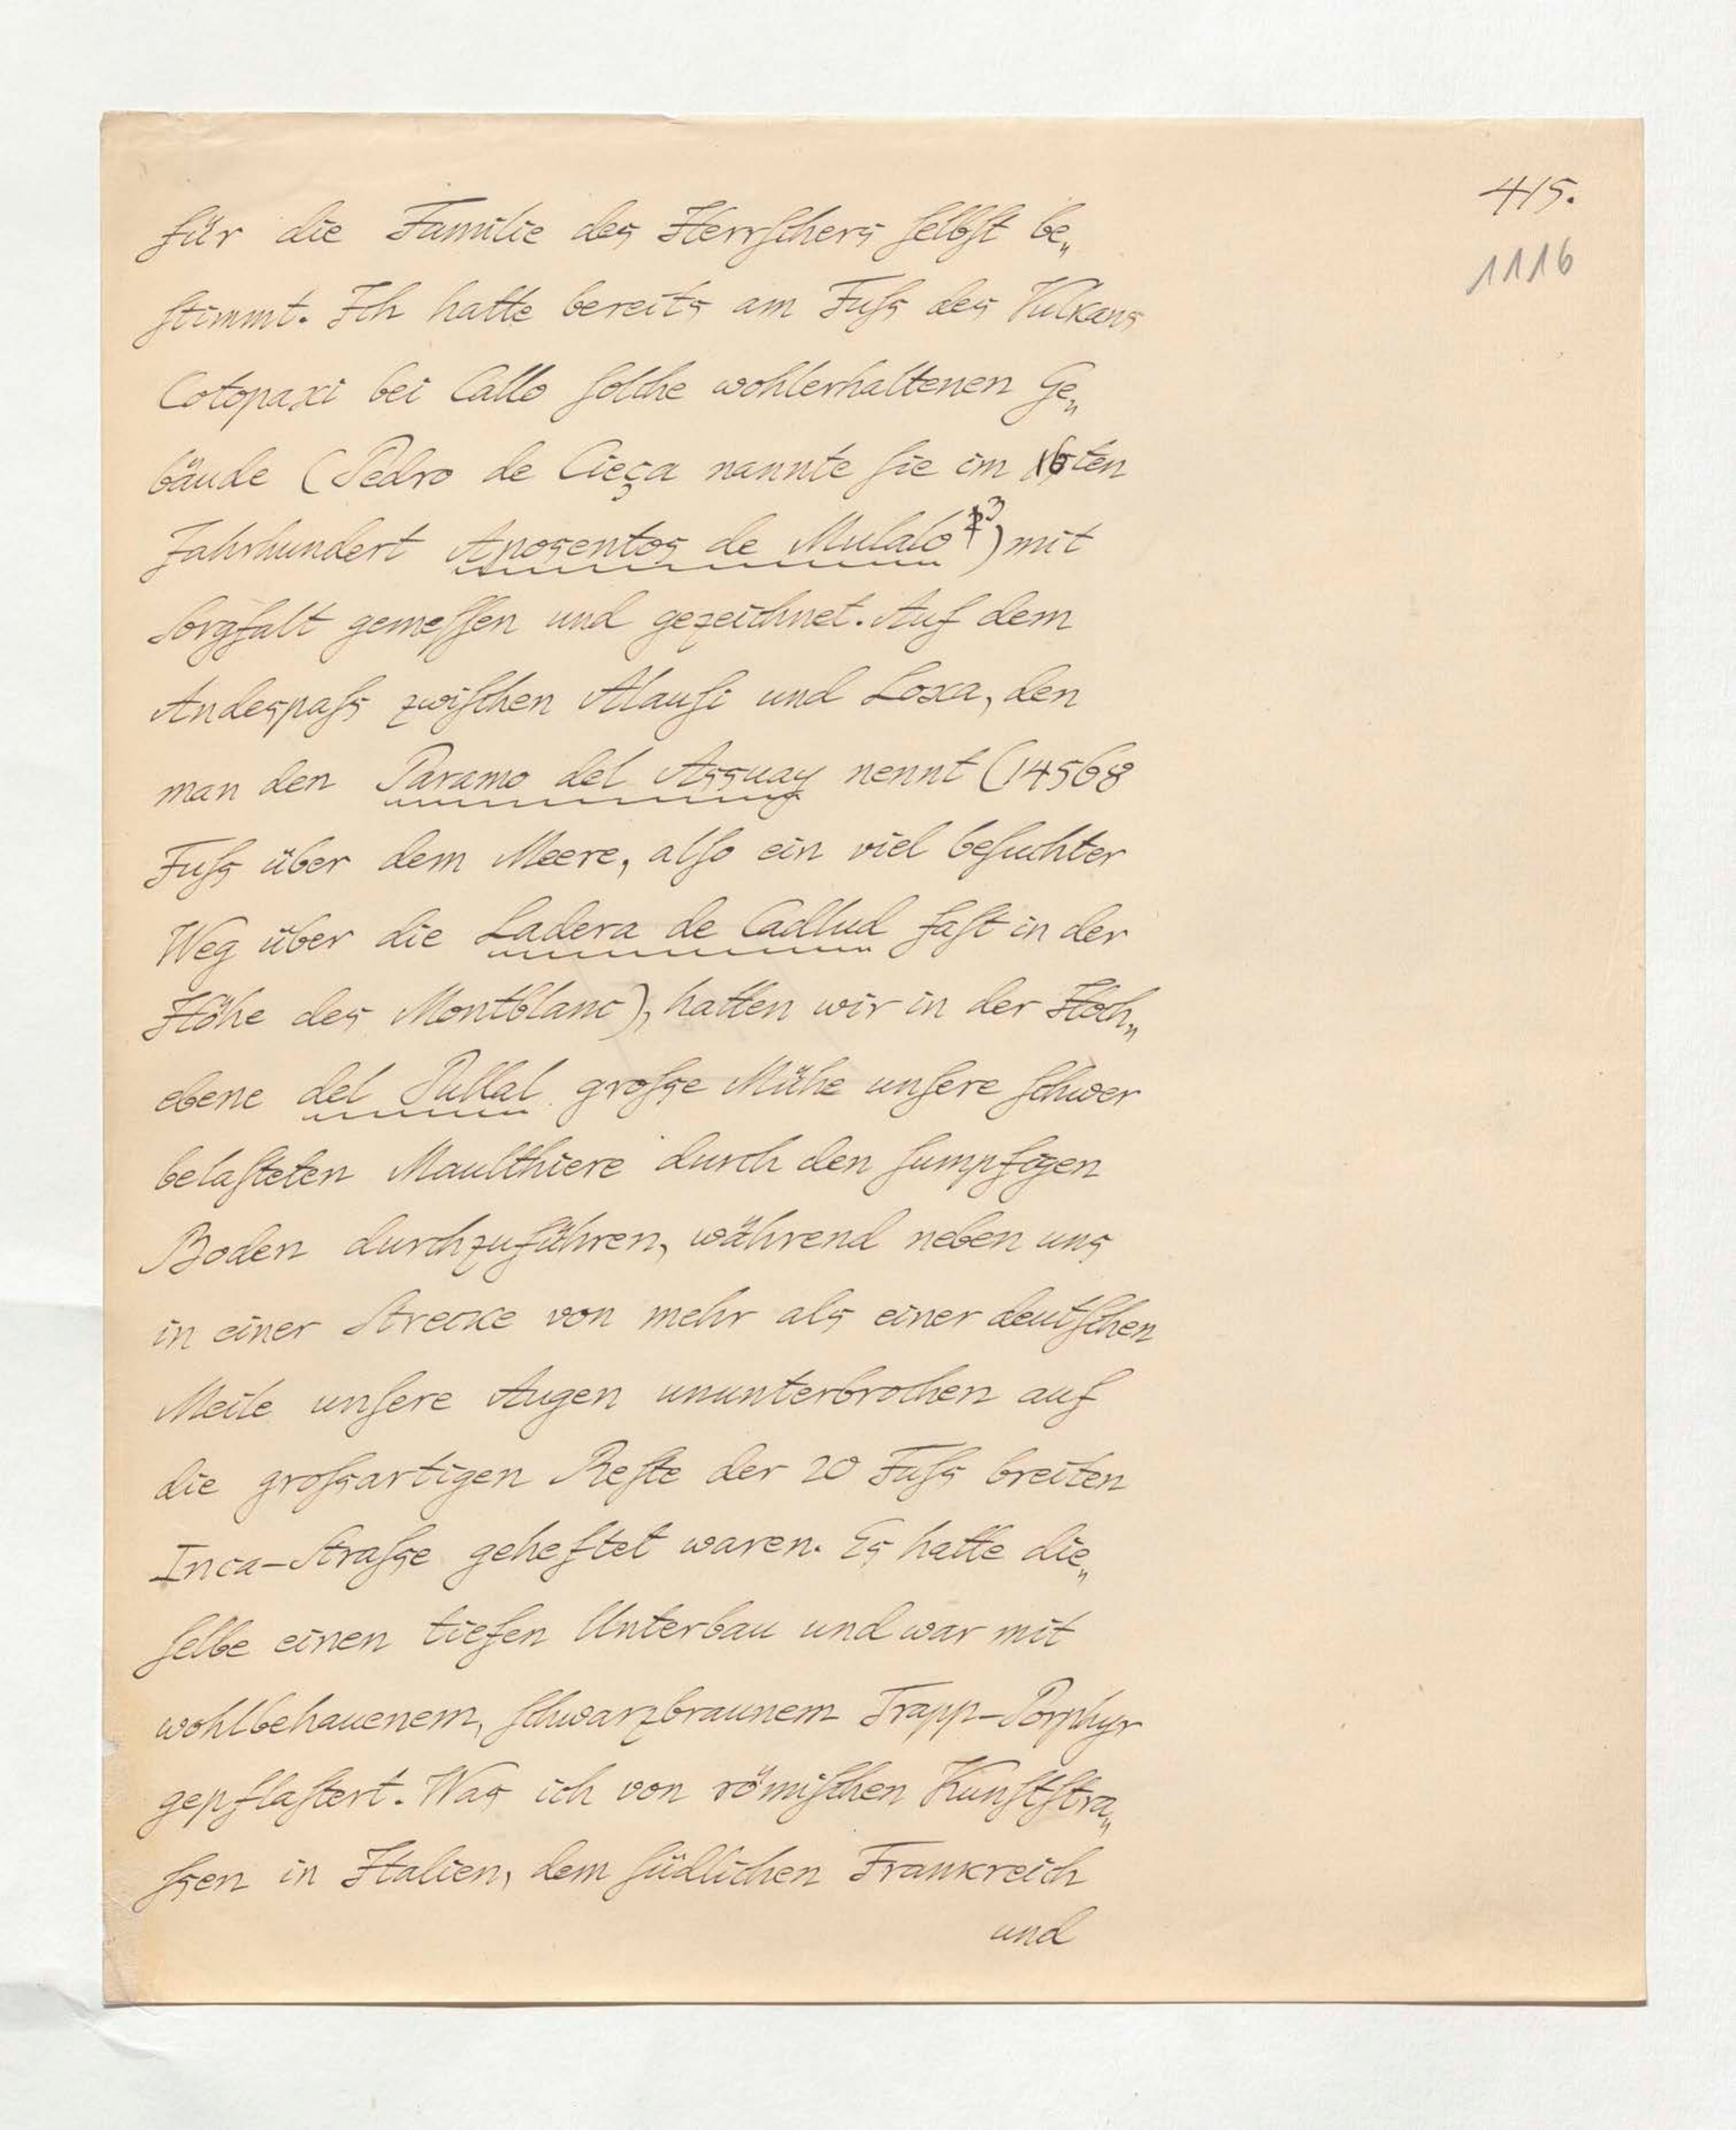 415.
1116
für die Familie des Herrschers selbst be„
stimmt. Ich hatte bereits am Fuſs des Vulkans
Cotopaxi bei Callo solche wohlerhaltenen Ge„
bäude (Pedro de Cieça nannte sie im 16ten
Jahrhundert Aposentos de Mulalo 3) mit
Sorgfalt gemessen und gezeichnet. Auf dem
Andespaſs zwischen Alausi und Loxa, den
man den Paramo del Assuay nennt (14568
Fuſs über dem Meere, also ein viel besuchter
Weg über die Ladera de Cadlud fast in der
Höhe des Montblanc), hatten wir in der Hoch„
ebene del Pullal groſse Mühe unsere schwer
belasteten Maulthiere durch den sumpfigen
Boden durchzuführen, während neben uns
in einer Strecke von mehr als einer deutschen
Meile unsere Augen ununterbrochen auf
die groſsartigen Reste der 20 Fuſs breiten
Inca-Straſse geheftet waren. Es hatte die„
selbe einen tiefen Unterbau und war mit
wohlbehauenem, schwarzbraunem Trapp-Porphyr
gepflastert. Was ich von römischen Kunststra„
ſsen in Italien, dem südlichen Frankreich
und